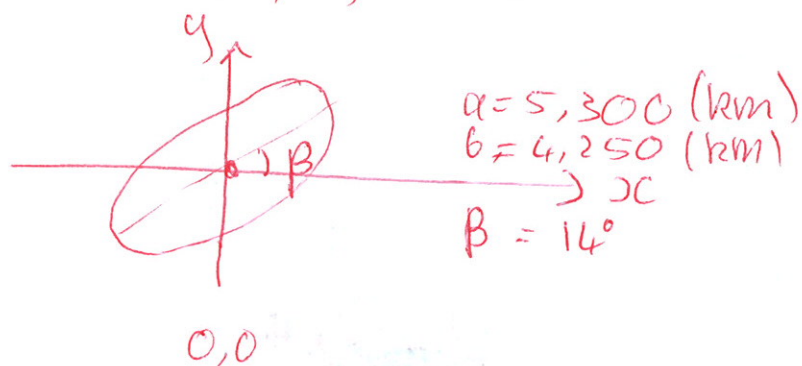 y
a = 5,300 (km)
b = 4,250 (km)
β
x
β = 14°
0,0